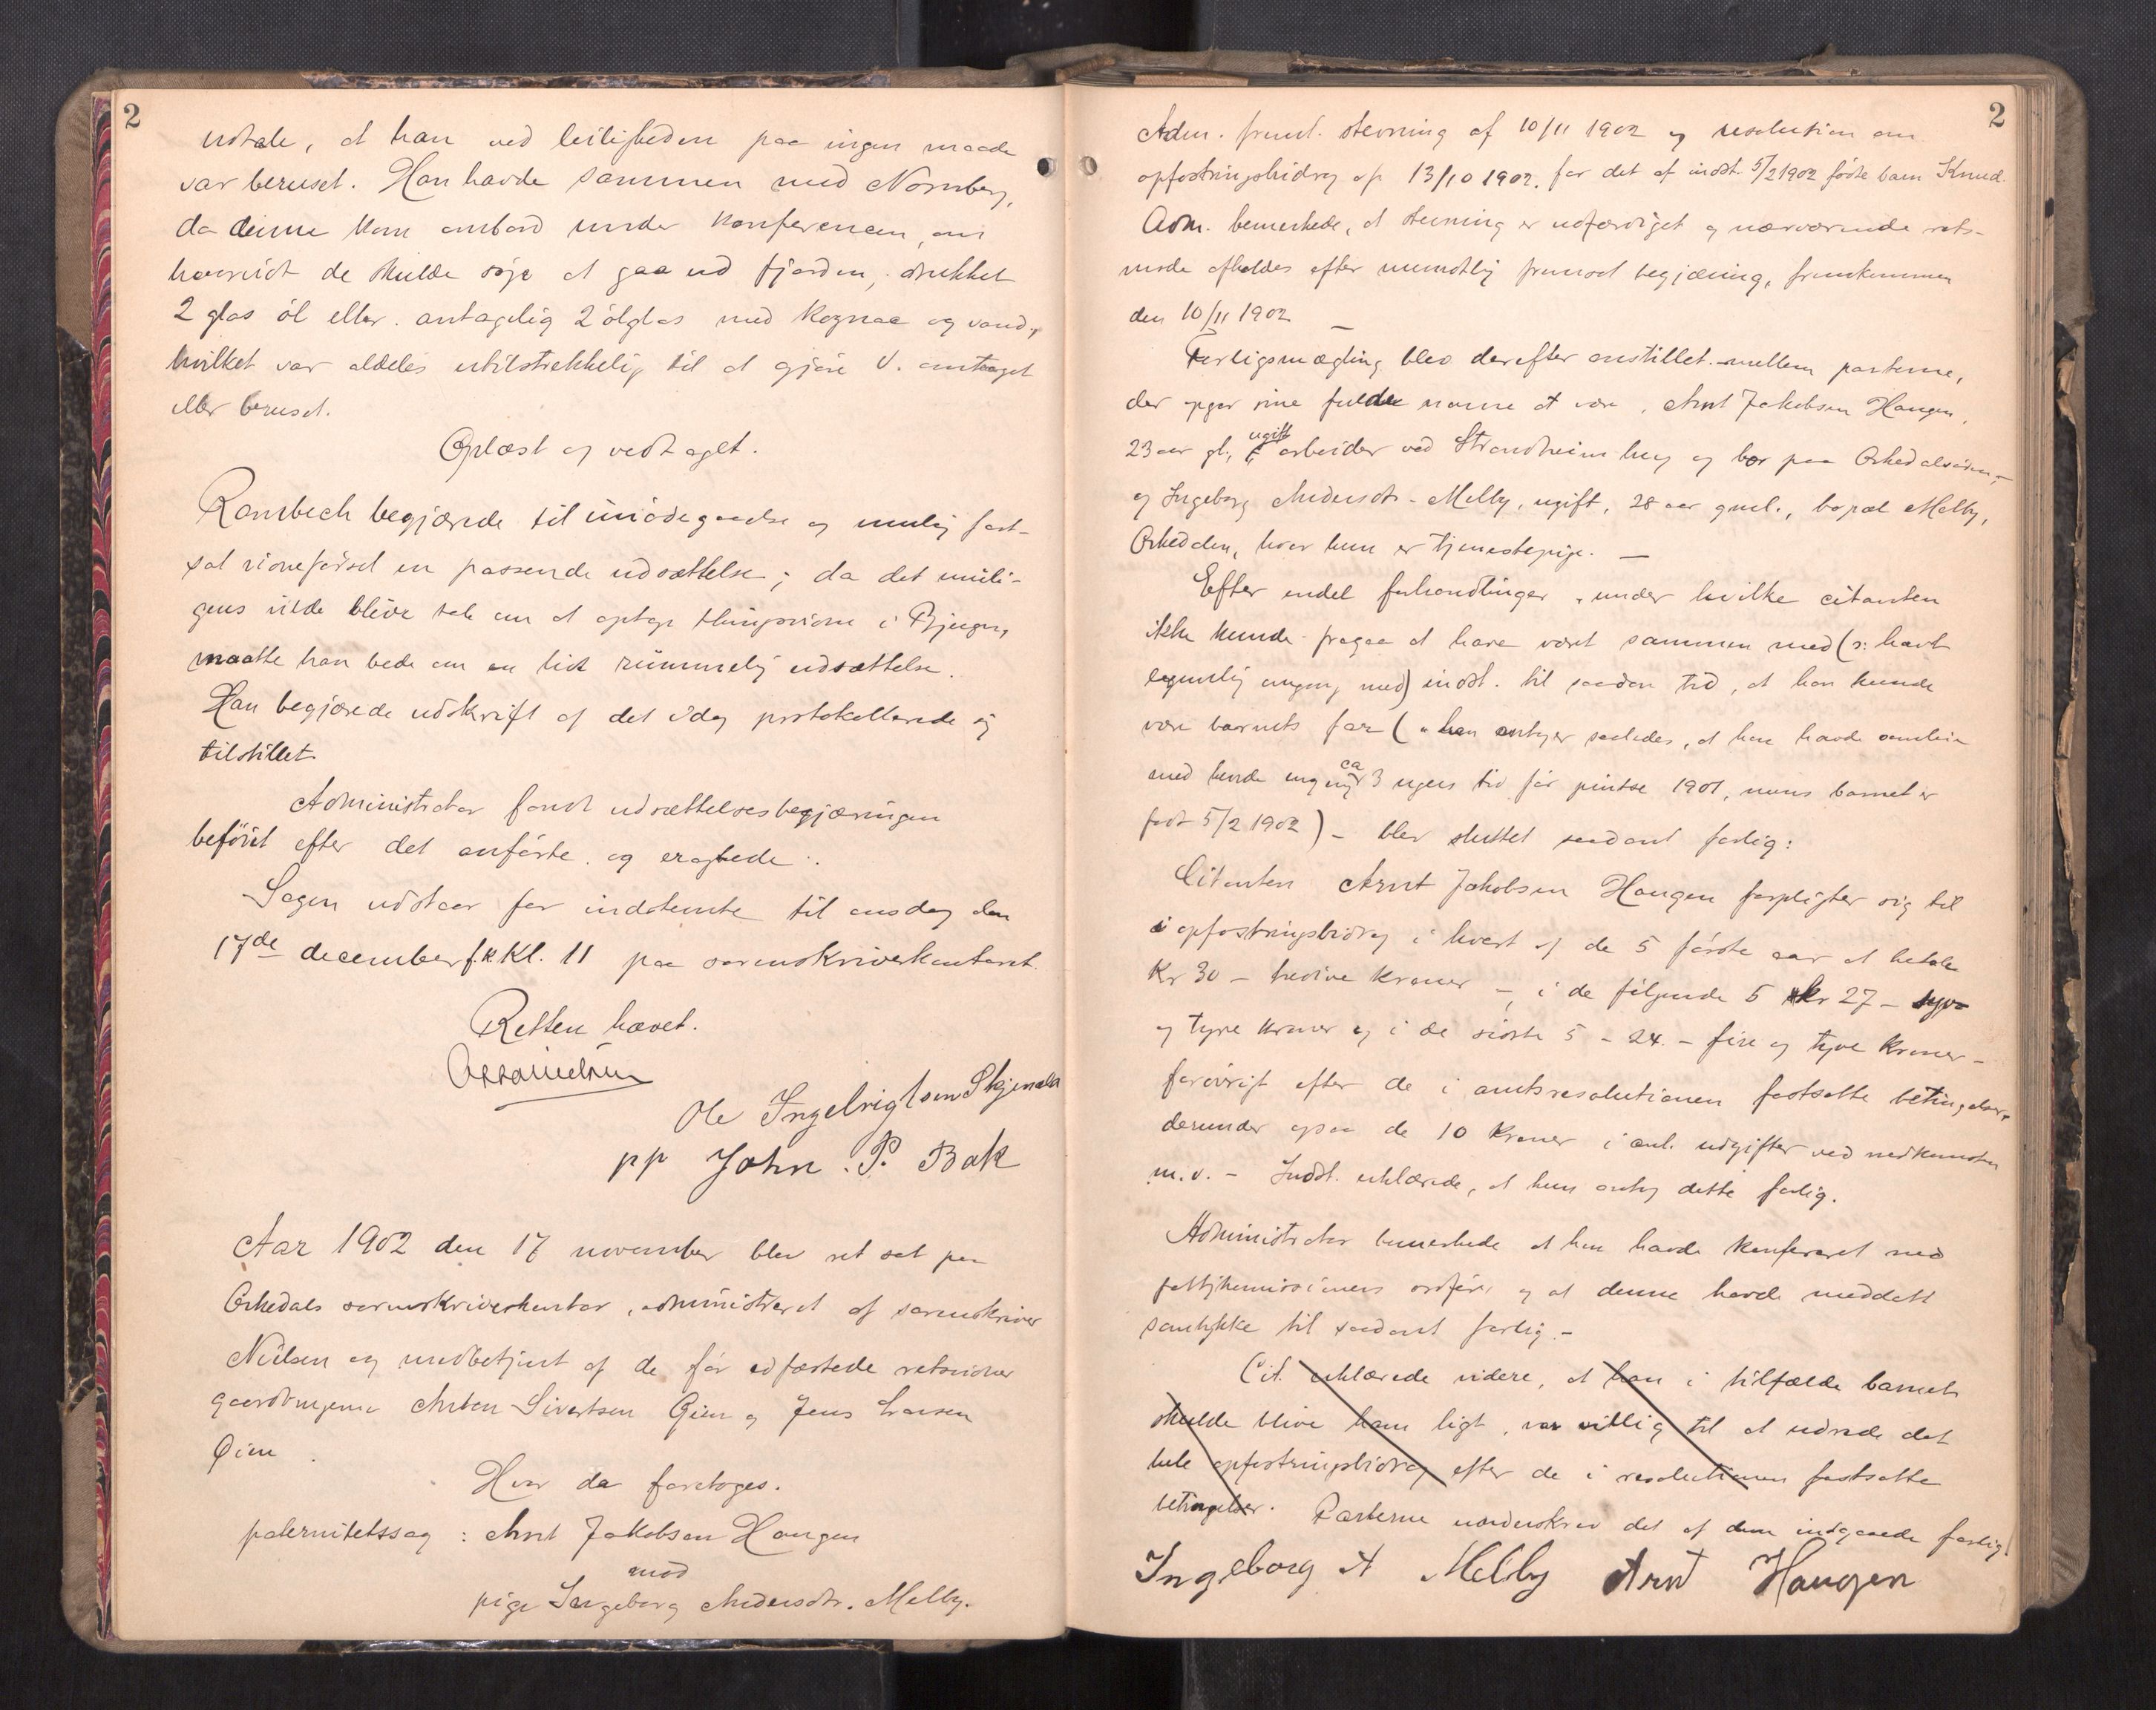 2
udtale, at han ved leiligheden paa ingen maade
var beruset. Han havde sammen med Nornberg,
da denne kom ombord under konferencen, om
hvorvidt de skulde søge at gaa ud fjorden, drukket
2 glas øl eller antagelig 2 ølglas med kognac og vand,
hvilket var aldeles utilstrækkelig til at gjøre V. antaget
eller beruset.
Oplæst og vedtaget.
Rambech begjærede til imødegaaelse og mulig fort-
sat vidneførsel en passende udsættelse; da det muli-
gens vilde blive tale om at optage thingsvidne i Bjugn,
maatte han bede om en lidt rummelig udsættelse.
Han begjærede udskrift af det idag protokollerede sig
tilstillet.
Administrator fandt udsættelsesbegjæringen
beføiet efter det anførte og eragtede:
Sagen udstaar for indstemte til onsdag den
17de december f. k. kl. 11 paa sorenskriverkontoret.
Retten hævet.
Ole Ingebrigtsen Skjenald
pp John. P. Bak
Aar 1902 den 17 november blev ret sat paa
Orkedals sorenskriverkontor, administreret af sorenskriver
Nielsen og medbetjent af de før edfæstede retsvidner
gaardbrugerne Anton Sivertsen Gjen og Jens Larsen
Øien.
Hvor da foretoges.
paternitetssag: Arnt Jakobsen Haugen
mod
pige Ingeborg Andersdtr. Melby.
2
Adm. freml. stevning af 10/11 1902 og resolution om
opfostringsbidrag af 13/10 1902. for det af indst. 5/2 1902 fødte barn Knud.
Adm. bemerkede, at stevning er udfærdiget og nærværende rets-
møde afholdes efter mundtlig fremsat begjæring, fremkommen
den 10/11 1902 –
Forligsmægling blev derefter anstillet mellem parterne,
der opgav sine fulde navne at være, Arnt Jakobsen Haugen,
23 aar gl., ugift arbeider ved Strandheim brug og bor paa Orkedalsøren,–
og Ingeborg Andersdtr. Melby, ugift, 28 aar gml., bopæl Melby,
Orkedalen, hvor hun er tjenestepige. –
Efter endel forhandlinger, under hvilke citanten
ikke kunde fragaa at have været sammen med (ɔ: havt
legemlig omgang med) indst. til saadan tid, at han kunde
være barnets far (han antyder saaledes, at han havde samleie
med hende ca 3 ugers tid før pintse 1901, mens barnet er
født 5/2 1902) – blev sluttet saadant forlig:
Citanten Arnt Jakobsen Haugen forpligter sig til
i opfostringsbidrag i hvert af de 5 første aar at betale
Kr 30 – tredive kroner –, i de følgende 5 kr 27 – syv
og tyve kroner og i de sidste 5 – 24. – fire og tyve kroner –
forøvrigt efter de i amtsresolutionen fastsatte betingelser,
derunder ogsaa de 10 kroner i anl. udgifter ved nedkomsten
m. v. – Indst. erklærede, at hun antog dette forlig.
Administrator bemerkede at han havde konfereret med
fattigkommissionens ordfører og at denne havde meddelt
samtykke til saadant forlig. –
Cit. erklærede videre, at han i tilfælde barnet
skulde blive ham ligt, var villig til at udrede det
hele opfostringsbidrag efter de i resolutionen fastsatte
betingelser. Parterne underskrev det af dem indgaaede forlig.
Ingeborg A Melby Arnt Haugen